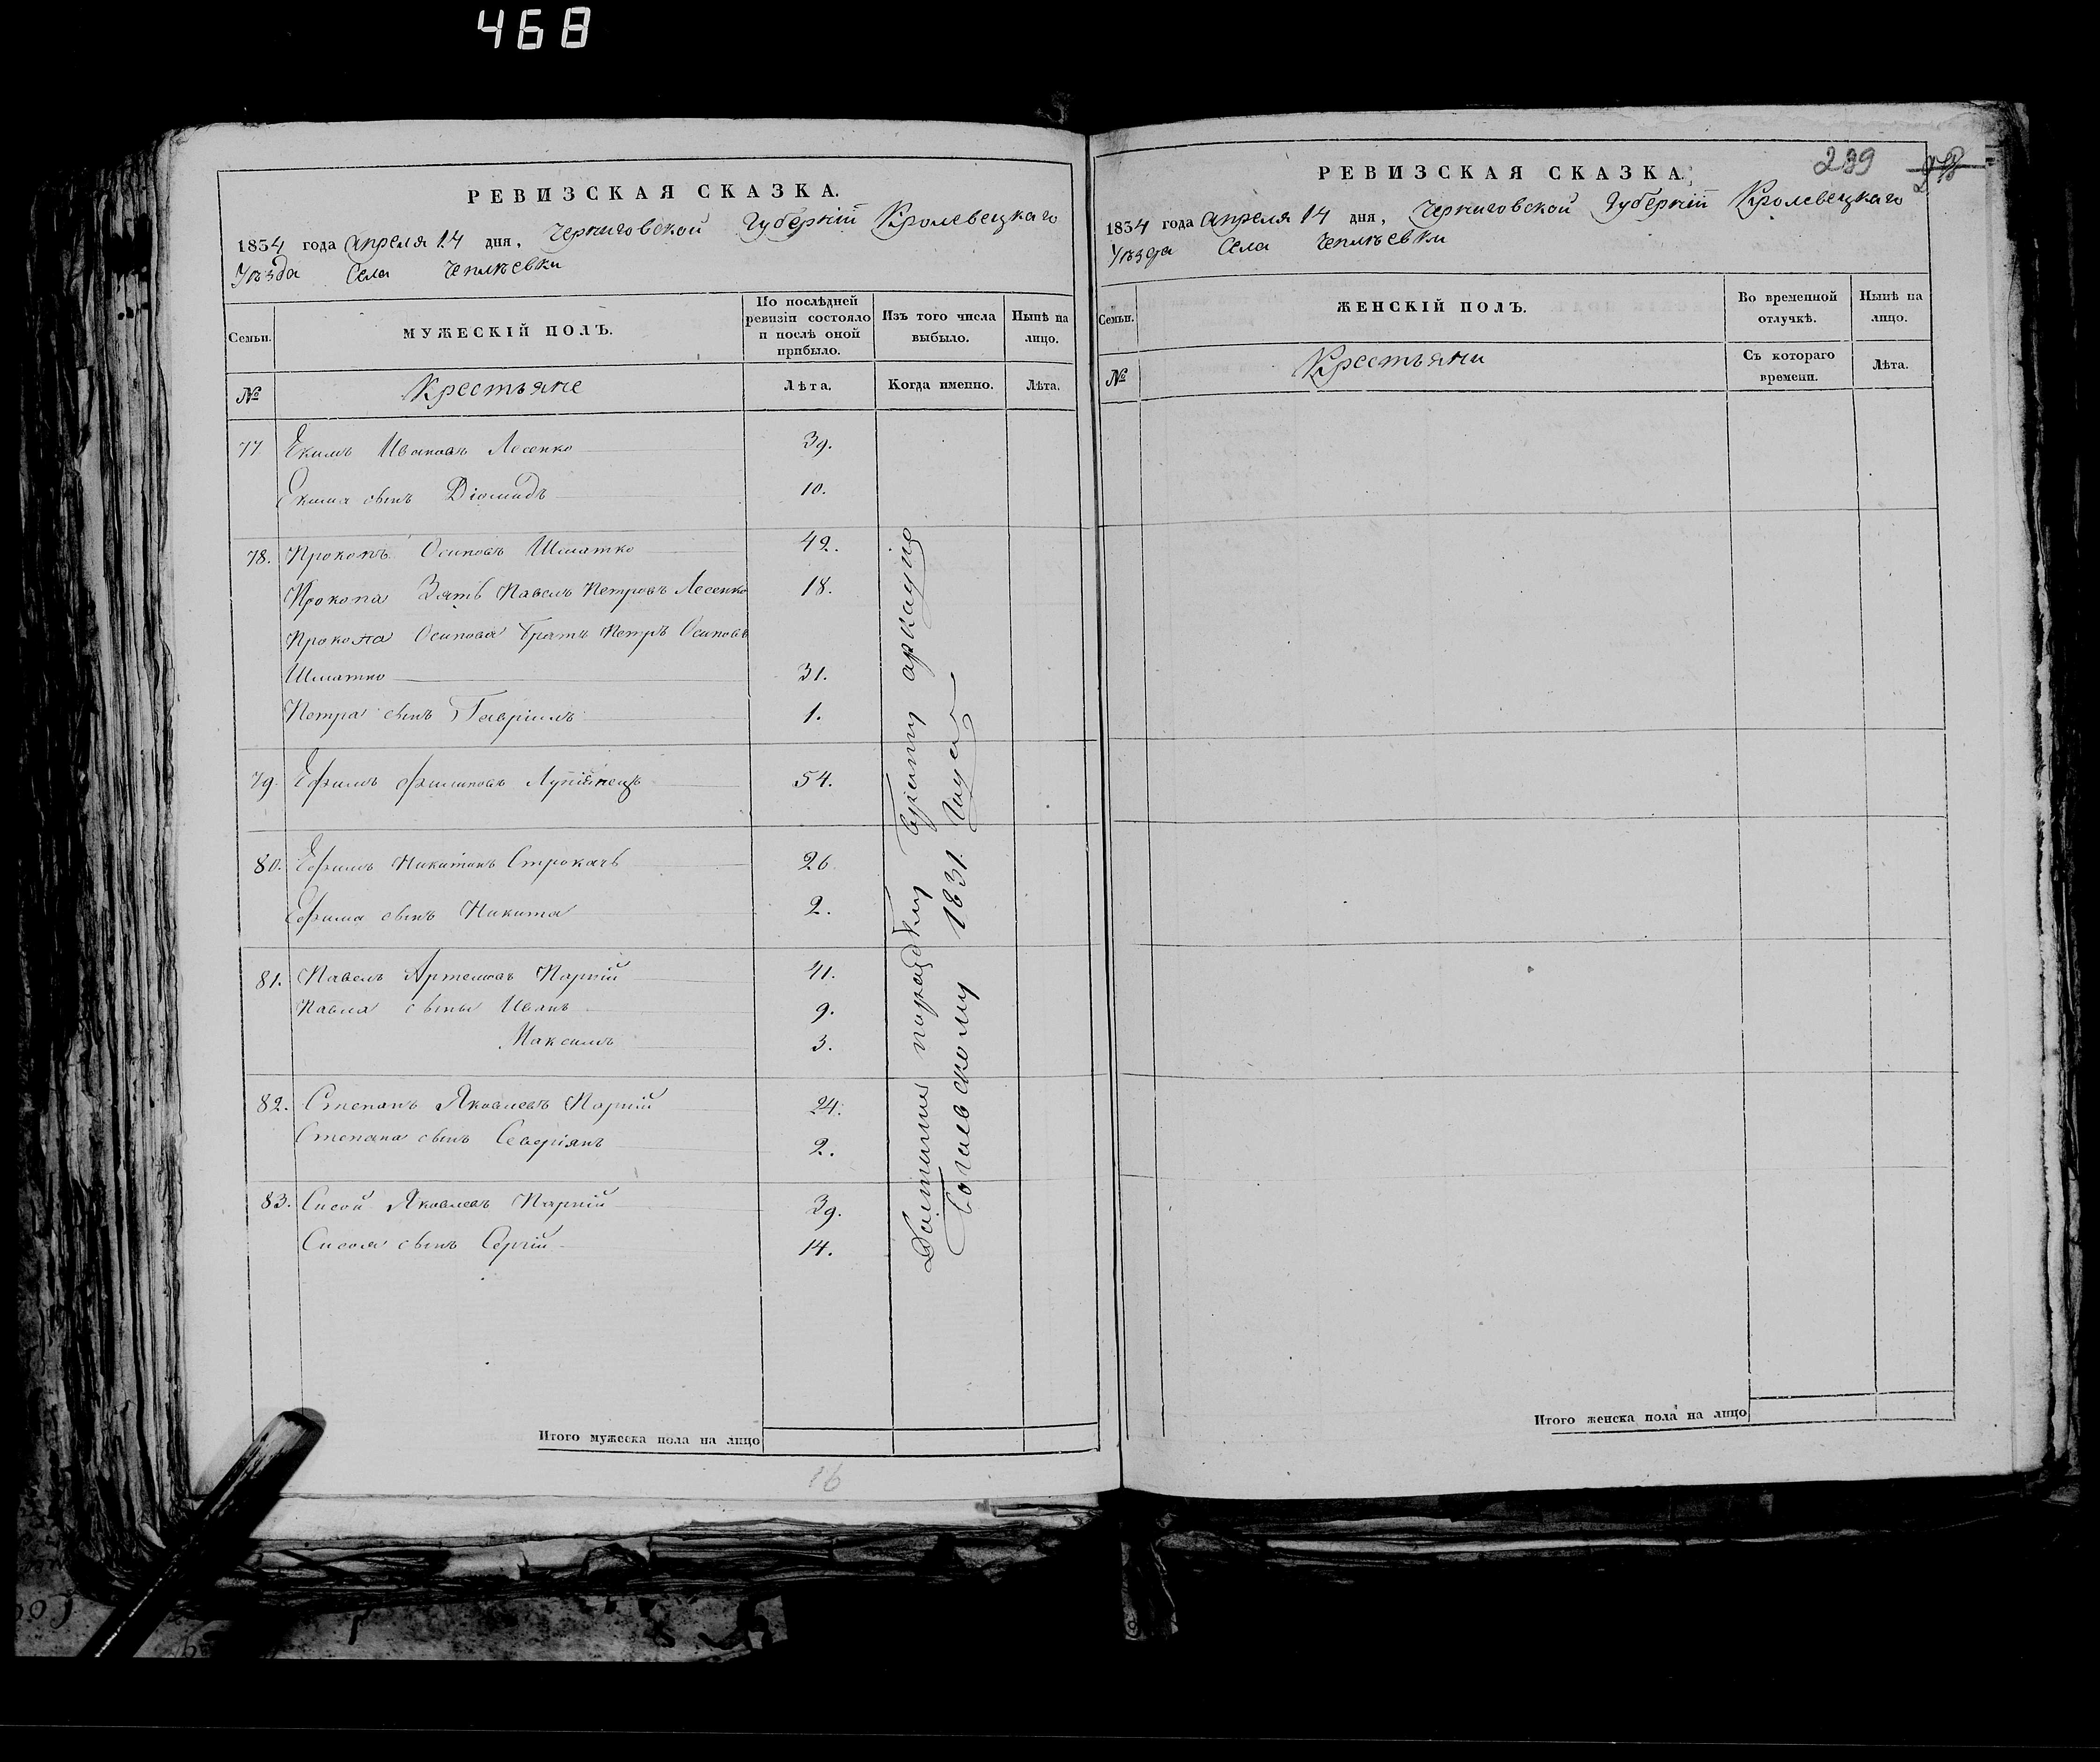 468
РЕВИЗСКАЯ СКАЗКА.
1834 года апреля 14 дня, Черниговской Губерніи Кролевецкаго
Уѣзда Села Чеплѣевки
Семьи.
МУЖЕСКІЙ ПОЛЪ.
По послѣдней ревизіи состояло и послѣ оной прибыло.
Изъ того числа выбыло.
Нынѣ на лицо.
№
Крестьяне
Лѣта.
Когда именно.
Лѣта.
77 Екимъ Ивановъ Лесенко 39.
Екима сынъ Діомидъ 10.
78. Прокопъ Осиповъ Шматко 42.
Прокопа Зять Павелъ Петровъ Лесенко 18.
Прокопа Осипова братъ Петръ Осиповъ
Шматко 31.
Петра сынъ Гавріилъ 1.
79. Ефимъ Филиповъ 54.
80. Ефимъ Никитинъ Строкачь 26
Ефима сынъ Никита 2.
81. Павелъ Артемовъ Парпій 41.
Павла сыны Иванъ 9.
Максимъ 3.
82. Степанъ Яковлевъ Парпій 24.
Степана сынъ Северіянъ 2.
83. Сисой Яковлевъ Парпій 39.
Сисоя сынъ Сергій 14.
1831 Года
Итого мужеска пола на лицо
16
РЕВИЗСКАЯ СКАЗКА.
289
1834 года апреля 14 дня, Черниговской Губерніи Кролевецкаго
Уѣзда Села Чеплѣевки
Семьи.
ЖЕНСКІЙ ПОЛЪ.
Во временной отлучкѣ.
Нынѣ на лицо.
№
Крестьяни
Съ котораго времени.
Лѣта.
Итого женска пола на лицо